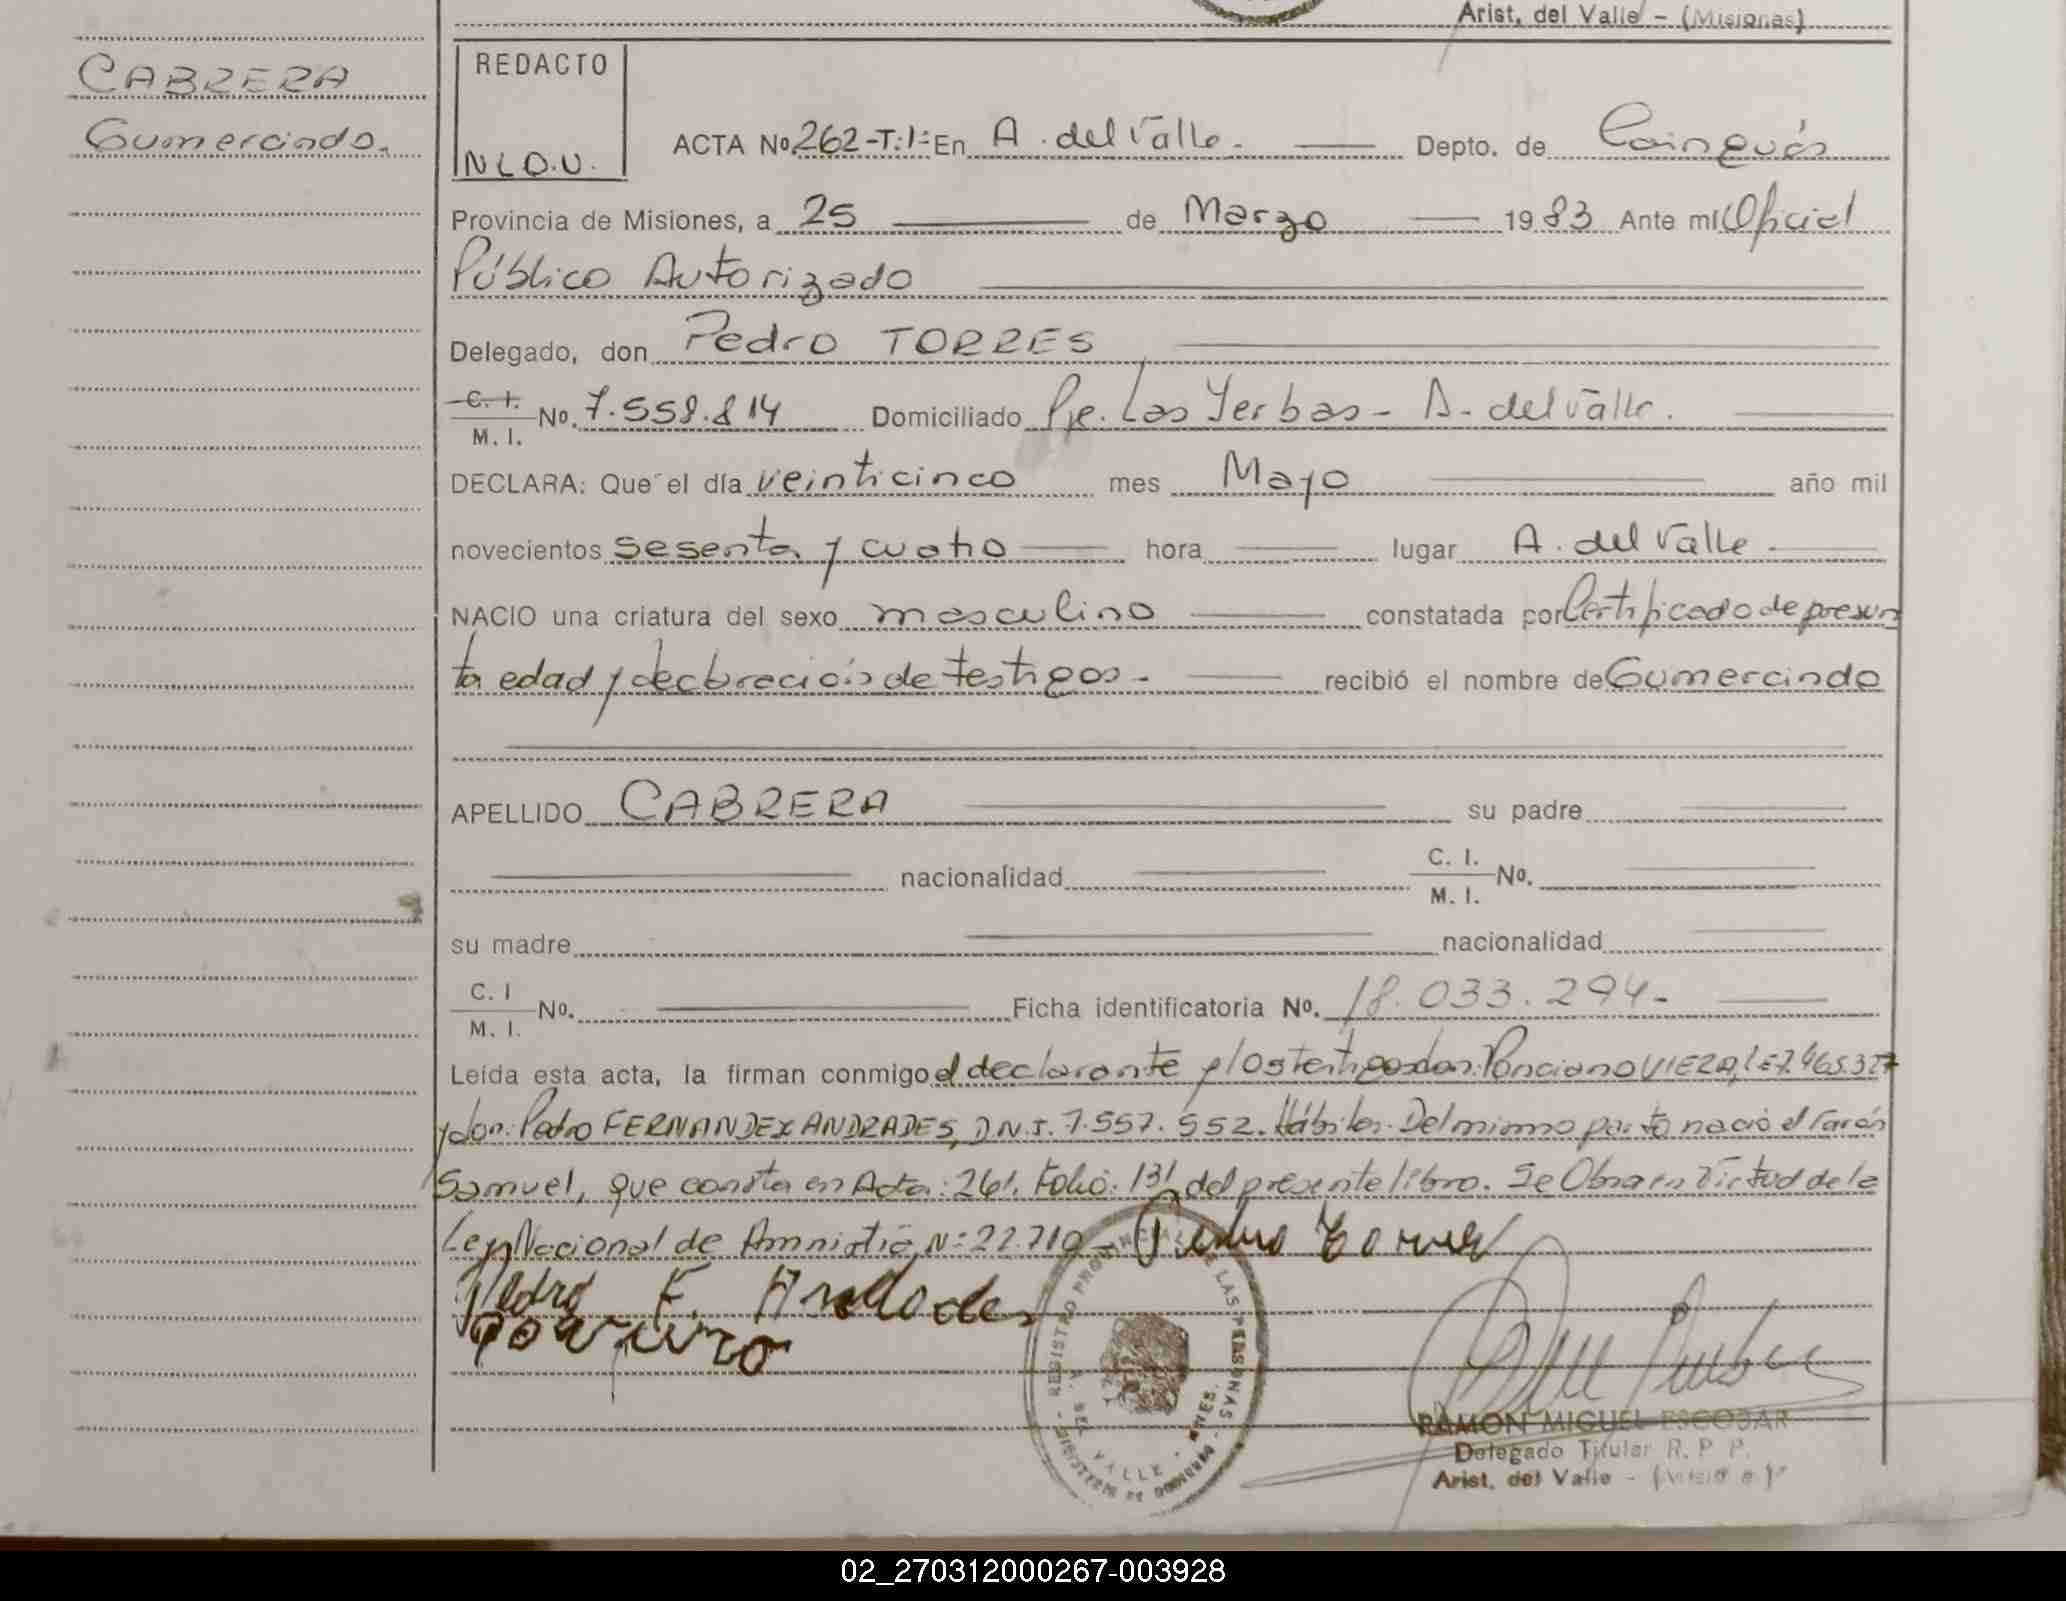 Arist. del Valle - (Misiones)
CABRERA
Gumercindo.
REDACTO
N L D.U.
ACTA No. 262-T:1:- En A. del Valle. Depto. de Cainguás
Provincia de Misiones, a 25 de Marzo 1983 Ante mí Oficial
Público Autorizado
Delegado, don Pedro TORRES
C. I.
M. I. No. 7.558.814 Domiciliado Pje. Las Yerbas - A. del Valle.
DECLARA: Que el día veinticinco mes Mayo año mil
novecientos sesenta y cuatro hora lugar A. del Valle
NACIO una criatura del sexo masculino constatada por Certificado de presun
ta edad y declaración de testigos. recibió el nombre de Gumercindo
APELLIDO CABRERA su padre
nacionalidad C. I.
M. I. No.
su madre nacionalidad
C. I
M. I. No. Ficha identificatoria No. 18.033.294.
Leída esta acta, la firman conmigo el declarante y los testigos don: Ponciano VIERA, L.E 7.465.327
y don: Pedro FERNANDEZ ANDRADES, D.N.I. 7.557.552. Hábiles. Del mismo parto nació el varón
Samuel, que consta en Acta: 261. Folio: 131 del presente libro. Se Obra en Virtud de la
Ley Nacional de Amnistía N: 22.710
Pedro Torres
Pedro F. Andrades
REGISTRO PROVINCIAL DE LAS PERSONAS
A. DEL VALLE
MNES.
RAMON MIGUEL ESCOBAR
Delegado Titular R. P. P.
Arist. del Valle - (Misiones)
02_270312000267-003928